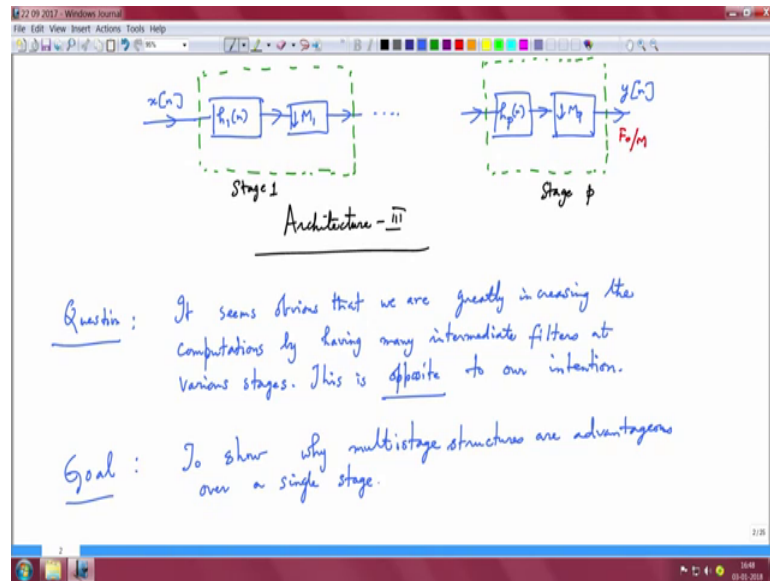 22 09 2017 - Windows Journal
File Edit View Insert Actions Tools Help
x[n]
h₁(n)
↓M₁
....
hp(n)
↓Mp
y[n]
F₀/M
Stage 1
Stage p
Architecture - III
Question : It seems obvious that we are greatly increasing the
computations by having many intermediate filters at
various stages. This is opposite to our intention.
Goal : To show why multistage structures are advantageous
over a single stage.
2
2/25
16:48
03-01-2018